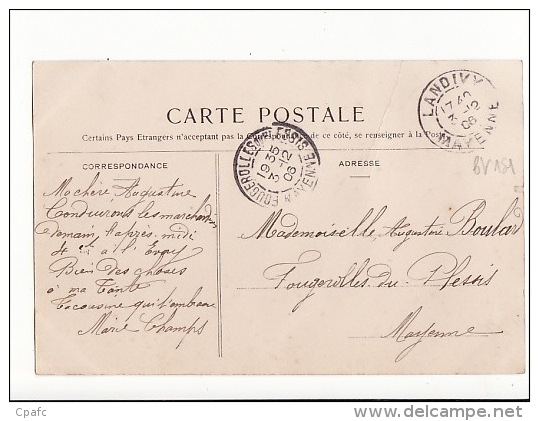 CARTE POSTALE
Certains Pays Etrangers n'acceptant pas la Correspondance de ce côté, se renseigner à la Poste
CORRESPONDANCE
ADRESSE
LANDIVY
17 40
3 - 12
06
MAYENNE
FOUGEROLLES-DU-PLESSIS
19 35
3 - 12
06
MAYENNE
Ma chère Augustine
Conduirons les marchandises
Demain, l'après midi
à l'
Bien Des choses
à ma Tante
Ta cousine qui t'embrasse
Marie Champs
Mademoiselle Augustine Boulard
Fougerolles du Plessis
Mayenne
Cpafc
www.delcampe.net